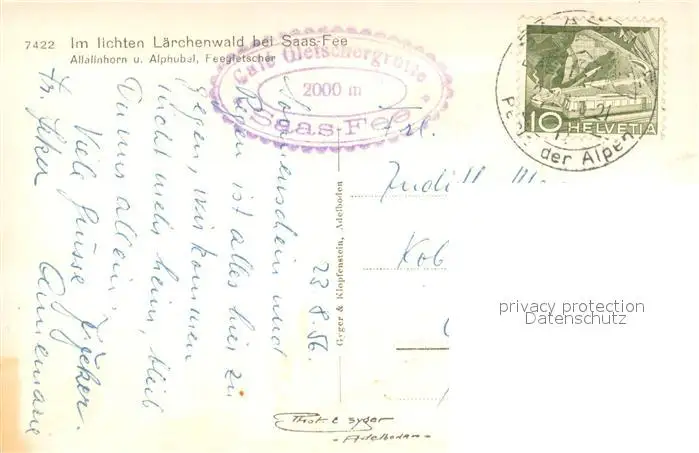 7422 Im lichten Lärchenwald bei Saas-Fee
Allalinhorn u. Alphubel, Feegletscher
Café Gletschergrotte
2000 m
Saas-Fee
10 HELVETIA
Perle der Alpen
23.8.56.
Sonnenschein und
Regen ist alles hier zu
gegen, wir kommen
nicht mehr heim, bleib
Du nur allein.
Viele Grüsse
Annemarie
Frl.
Judith
Gyger & Klopfenstein, Adelboden
Phot. E Gyger
Adelboden
privacy protection
Datenschutz